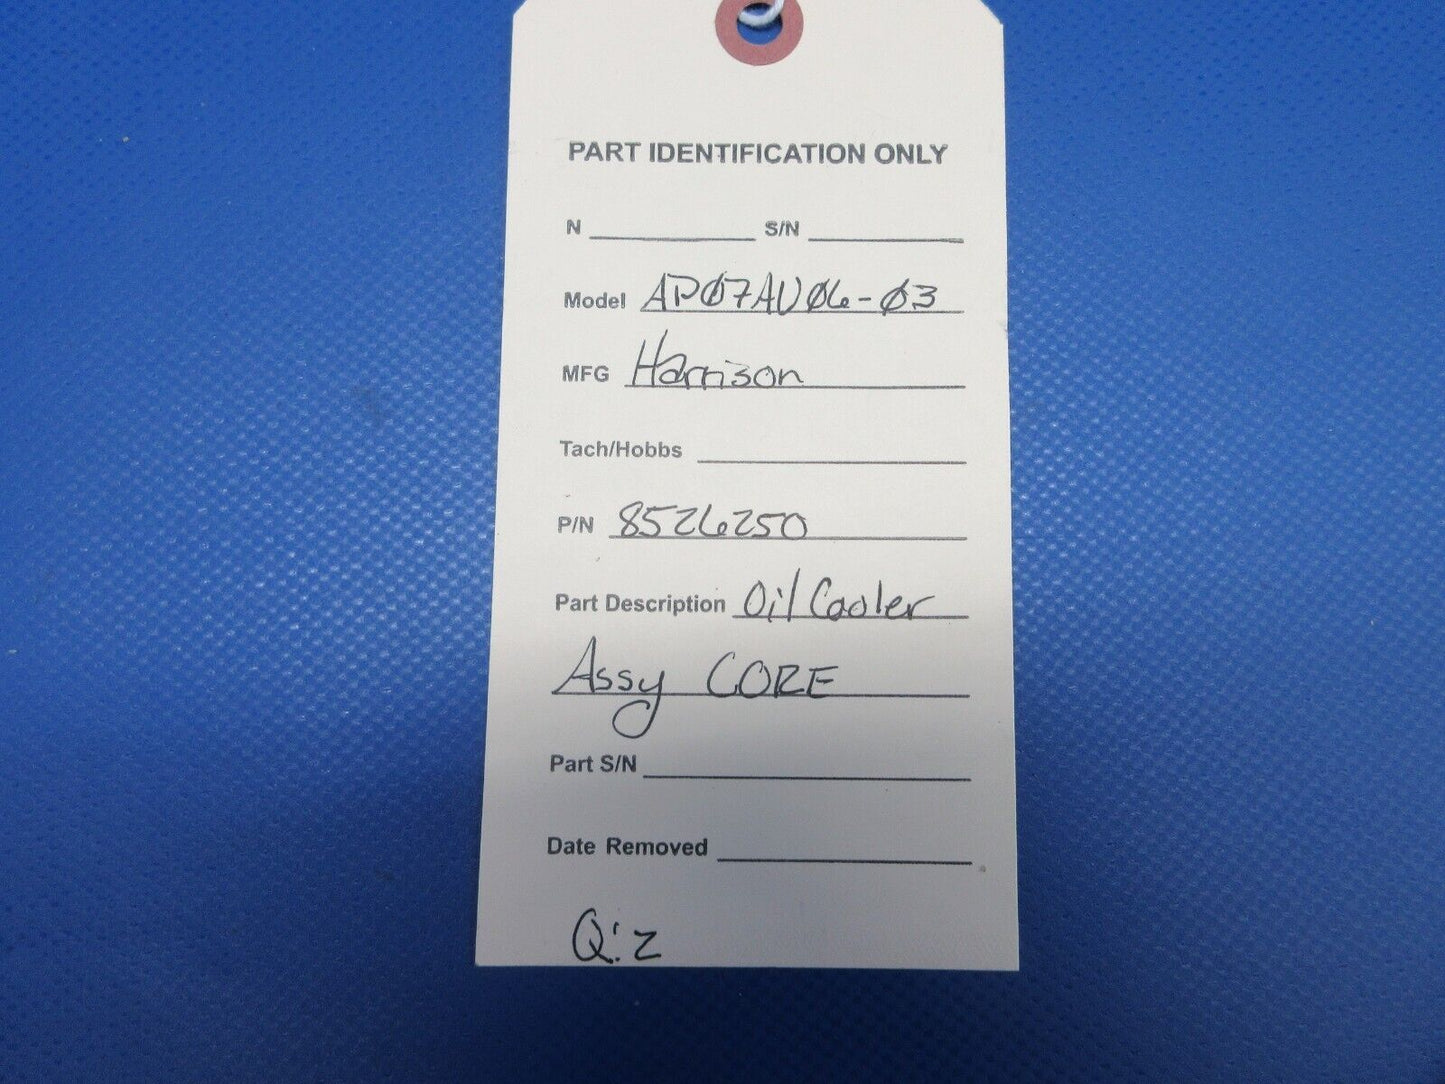 PART IDENTIFICATION ONLY
N ________ S/N ________
Model AP07AU06-03
MFG Harrison
Tach/Hobbs ________
P/N 8526250
Part Description Oil Cooler
Assy CORE
Part S/N ________
Date Removed ________
Q:2